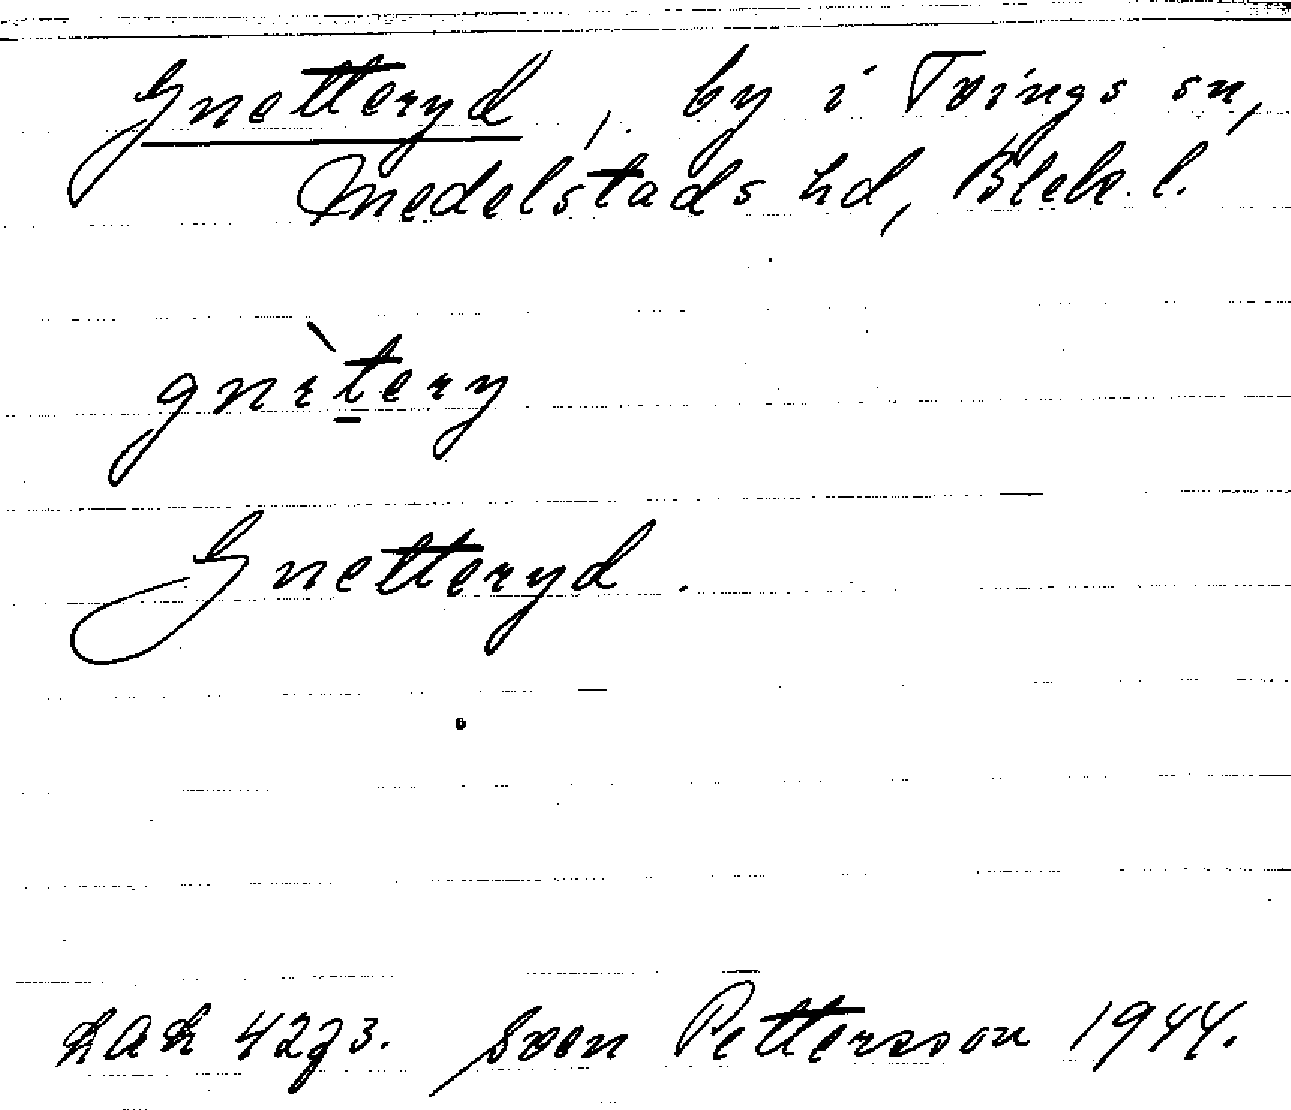 Gnetteryd, by i Tvings sn,
Medelstads hd, Blek. l.
Gnetteryd.
Sven Pettersson 1944.